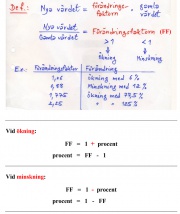 Def.: Nya värdet = förändrings- faktorn · gamla värdet
Nya värdet / Gamla värdet = Förändringsfaktorn (FF)
>1 <1
Ökning Minskning
Ex.: Förändringsfaktor Förändring
1,06 ökning med 6%
0,88 Minskning med 12%
1,775 ökning med 77,5%
Vid ökning:
FF = 1 + procent
procent = FF - 1
Vid minskning:
FF = 1 - procent
procent = 1 - FF